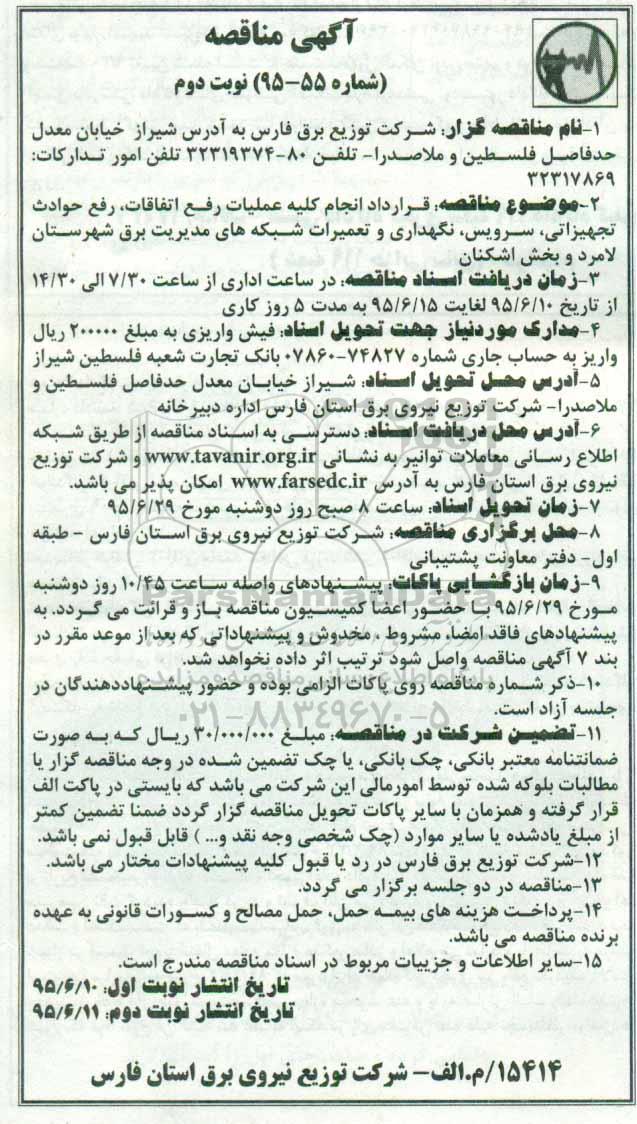 آگهی مناقصه
(شماره ۵۵-۹۵) نوبت دوم
۱-نام مناقصه گزار: شرکت توزیع برق فارس به آدرس شیراز خیابان معدل
حدفاصل فلسطین و ملاصدرا- تلفن ۸۰-۳۲۳۱۹۳۷۴ تلفن امور تدارکات:
۳۲۳۱۷۸۶۹
۲-موضوع مناقصه: قرارداد انجام کلیه عملیات رفع اتفاقات، رفع حوادث
تجهیزاتی، سرویس، نگهداری و تعمیرات شبکه های مدیریت برق شهرستان
لامرد و بخش اشکنان
۳-زمان دریافت اسناد مناقصه: در ساعت اداری از ساعت ۷/۳۰ الی ۱۴/۳۰
از تاریخ ۹۵/۶/۱۰ لغایت ۹۵/۶/۱۵ به مدت ۵ روز کاری
۴-مدارک موردنیاز جهت تحویل اسناد: فیش واریزی به مبلغ ۲۰۰۰۰۰ ریال
واریز به حساب جاری شماره ۷۴۸۲۷-۰۷۸۶۰ بانک تجارت شعبه فلسطین شیراز
۵-آدرس محل تحویل اسناد: شیراز خیابان معدل حدفاصل فلسطین و
ملاصدرا- شرکت توزیع نیروی برق استان فارس اداره دبیرخانه
۶-آدرس محل دریافت اسناد: دسترسی به اسناد مناقصه از طریق شبکه
اطلاع رسانی معاملات توانیر به نشانی www.tavanir.org.ir و شرکت توزیع
نیروی برق استان فارس به آدرس www.farsedc.ir امکان پذیر می باشد.
۷-زمان تحویل اسناد: ساعت ۸ صبح روز دوشنبه مورخ ۹۵/۶/۲۹
۸-محل برگزاری مناقصه: شرکت توزیع نیروی برق استان فارس - طبقه
اول- دفتر معاونت پشتیبانی
۹-زمان بازگشایی پاکات: پیشنهادهای واصله ساعت ۱۰/۴۵ روز دوشنبه
مورخ ۹۵/۶/۲۹ با حضور اعضا کمیسیون مناقصه باز و قرائت می گردد. به
پیشنهادهای فاقد امضا، مشروط ، مخدوش و پیشنهاداتی که بعد از موعد مقرر در
بند ۷ آگهی مناقصه واصل شود ترتیب اثر داده نخواهد شد.
۱۰-ذکر شماره مناقصه روی پاکات الزامی بوده و حضور پیشنهاددهندگان در
جلسه آزاد است.
۱۱-تضمین شرکت در مناقصه: مبلغ ۳۰/۰۰۰/۰۰۰ ریال که به صورت
ضمانتنامه معتبر بانکی، چک بانکی، یا چک تضمین شده در وجه مناقصه گزار یا
مطالبات بلوکه شده توسط امورمالی این شرکت می باشد که بایستی در پاکت الف
قرار گرفته و همزمان با سایر پاکات تحویل مناقصه گزار گردد ضمنا تضمین کمتر
از مبلغ یادشده یا سایر موارد (چک شخصی وجه نقد و... ) قابل قبول نمی باشد.
۱۲-شرکت توزیع برق فارس در رد یا قبول کلیه پیشنهادات مختار می باشد.
۱۳-مناقصه در دو جلسه برگزار می گردد.
۱۴-پرداخت هزینه های بیمه حمل، حمل مصالح و کسورات قانونی به عهده
برنده مناقصه می باشد.
۱۵-سایر اطلاعات و جزییات مربوط در اسناد مناقصه مندرج است.
تاریخ انتشار نوبت اول: ۹۵/۶/۱۰
تاریخ انتشار نوبت دوم: ۹۵/۶/۱۱
۱۵۴۱۴/م.الف- شرکت توزیع نیروی برق استان فارس
ParsNamadData
پایگاه اطلاع رسانی مناقصه و مزایده
۰۲۱-۸۸۳۴۹۶۷۰-۵